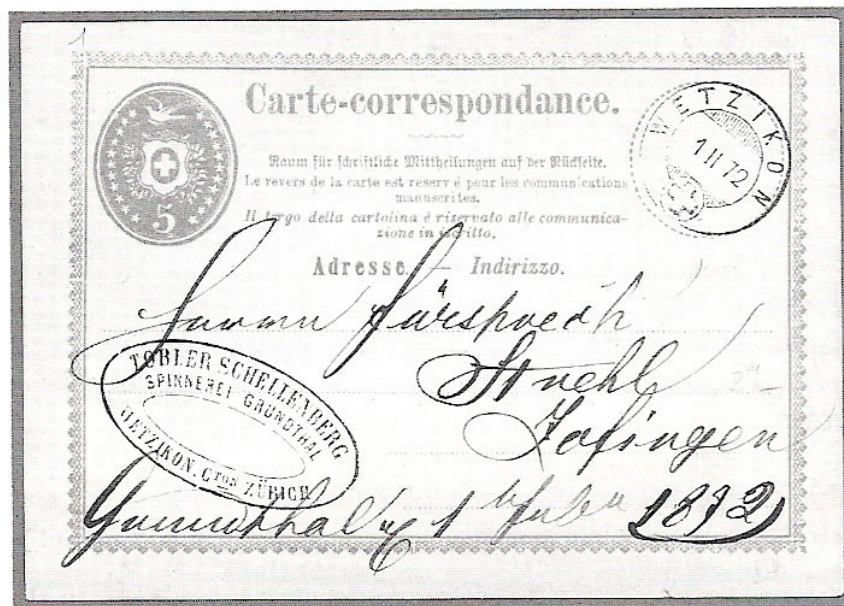 Carte-correspondance.
Raum für schriftliche Mittheilungen auf der Rückseite.
Le revers de la carte est réservé pour les communications
manuscrites.
Il tergo della cartolina è riservato alle communica-
zione in iscritto.
Adresse. — Indirizzo.
5
WETZIKON
1 II 72
Herrn Fürsprech
Zofingen
TOBLER SCHELLENBERG
SPINNEREI GRUNDTHAL
WETZIKON. CTON ZÜRICH
Grundthal 1 1872